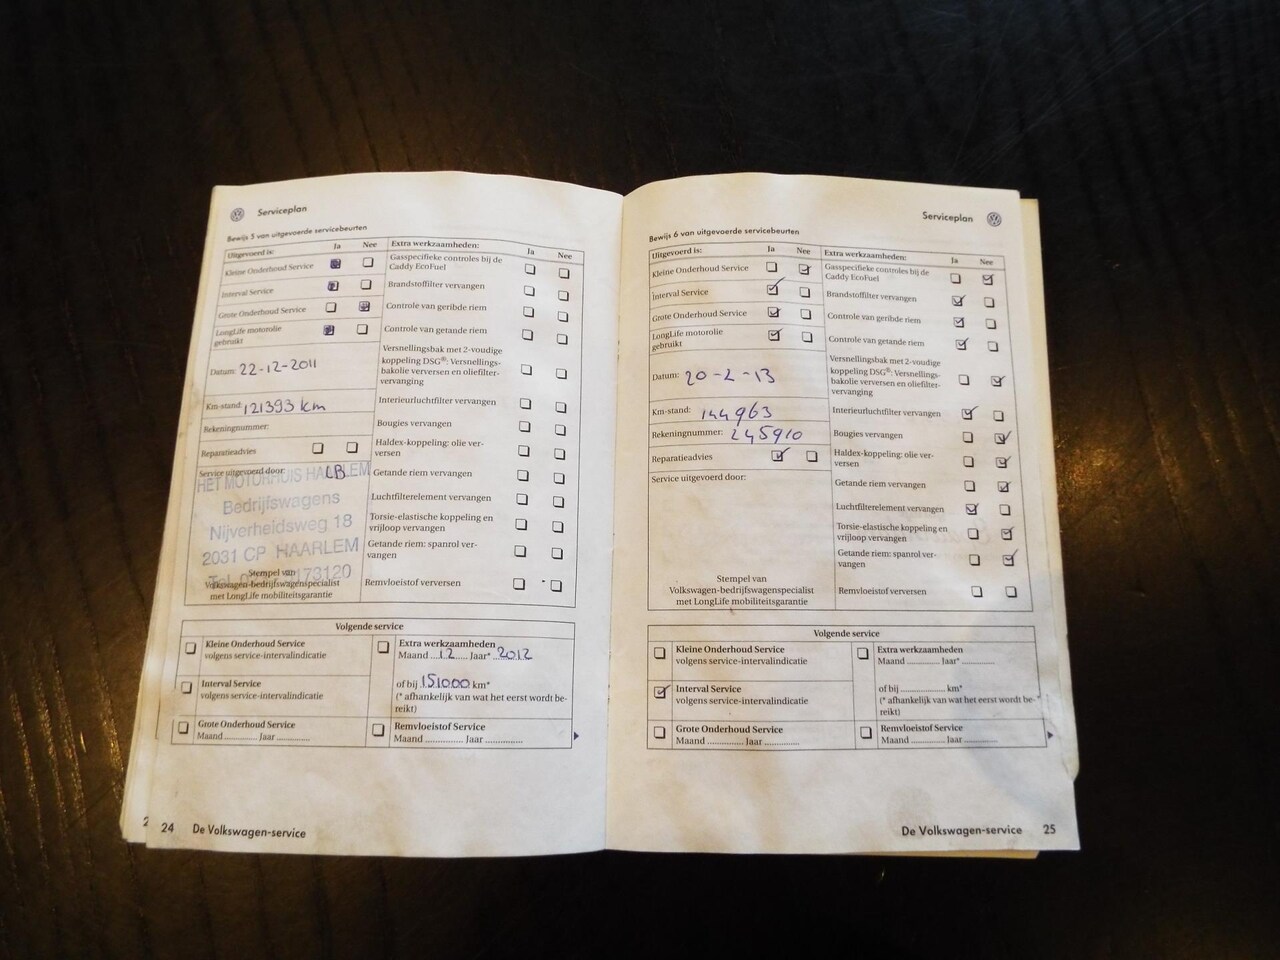 Serviceplan
Bewijs 5 van uitgevoerde servicebeurten
Uitgevoerd is: Ja Nee
Kleine Onderhoud Service
Interval Service
Grote Onderhoud Service
LongLife motorolie
gebruikt
Datum: 22-12-2011
Km-stand: 121393 km
Rekeningnummer:
Reparatieadvies
Service uitgevoerd door: LB
HET MOTORHUIS HAARLEM
Bedrijfswagens
Nijverheidsweg 18
2031 CP HAARLEM
Stempel van
Volkswagen-bedrijfswagenspecialist
met LongLife mobiliteitsgarantie
Extra werkzaamheden: Ja Nee
Gasspecifieke controles bij de
Caddy EcoFuel
Brandstoffilter vervangen
Controle van geribde riem
Controle van getande riem
Versnellingsbak met 2-voudige
koppeling DSG®: Versnellings-
bakolie verversen en oliefilter-
vervanging
Interieurluchtfilter vervangen
Bougies vervangen
Haldex-koppeling: olie ver-
versen
Getande riem vervangen
Luchtfilterelement vervangen
Torsie-elastische koppeling en
vrijloop vervangen
Getande riem: spanrol ver-
vangen
Remvloeistof verversen
Volgende service
Kleine Onderhoud Service
volgens service-intervalindicatie
Interval Service
volgens service-intervalindicatie
Grote Onderhoud Service
Maand ............ Jaar ............
Extra werkzaamheden
Maand ...12... Jaar* ..2012
of bij 151000 km*
(* afhankelijk van wat het eerst wordt be-
reikt)
Remvloeistof Service
Maand ............ Jaar ............
24 De Volkswagen-service
Serviceplan
Bewijs 6 van uitgevoerde servicebeurten
Uitgevoerd is: Ja Nee
Kleine Onderhoud Service
Interval Service
Grote Onderhoud Service
LongLife motorolie
gebruikt
Datum: 20-2-13
Km-stand: 144963
Rekeningnummer: 245910
Reparatieadvies
Service uitgevoerd door:
Stempel van
Volkswagen-bedrijfswagenspecialist
met LongLife mobiliteitsgarantie
Extra werkzaamheden: Ja Nee
Gasspecifieke controles bij de
Caddy EcoFuel
Brandstoffilter vervangen
Controle van geribde riem
Controle van getande riem
Versnellingsbak met 2-voudige
koppeling DSG®: Versnellings-
bakolie verversen en oliefilter-
vervanging
Interieurluchtfilter vervangen
Bougies vervangen
Haldex-koppeling: olie ver-
versen
Getande riem vervangen
Luchtfilterelement vervangen
Torsie-elastische koppeling en
vrijloop vervangen
Getande riem: spanrol ver-
vangen
Remvloeistof verversen
Volgende service
Kleine Onderhoud Service
volgens service-intervalindicatie
Interval Service
volgens service-intervalindicatie
Grote Onderhoud Service
Maand ............ Jaar ............
Extra werkzaamheden
Maand ........... Jaar* ...........
of bij ............... km*
(* afhankelijk van wat het eerst wordt be-
reikt)
Remvloeistof Service
Maand ............ Jaar ............
De Volkswagen-service 25